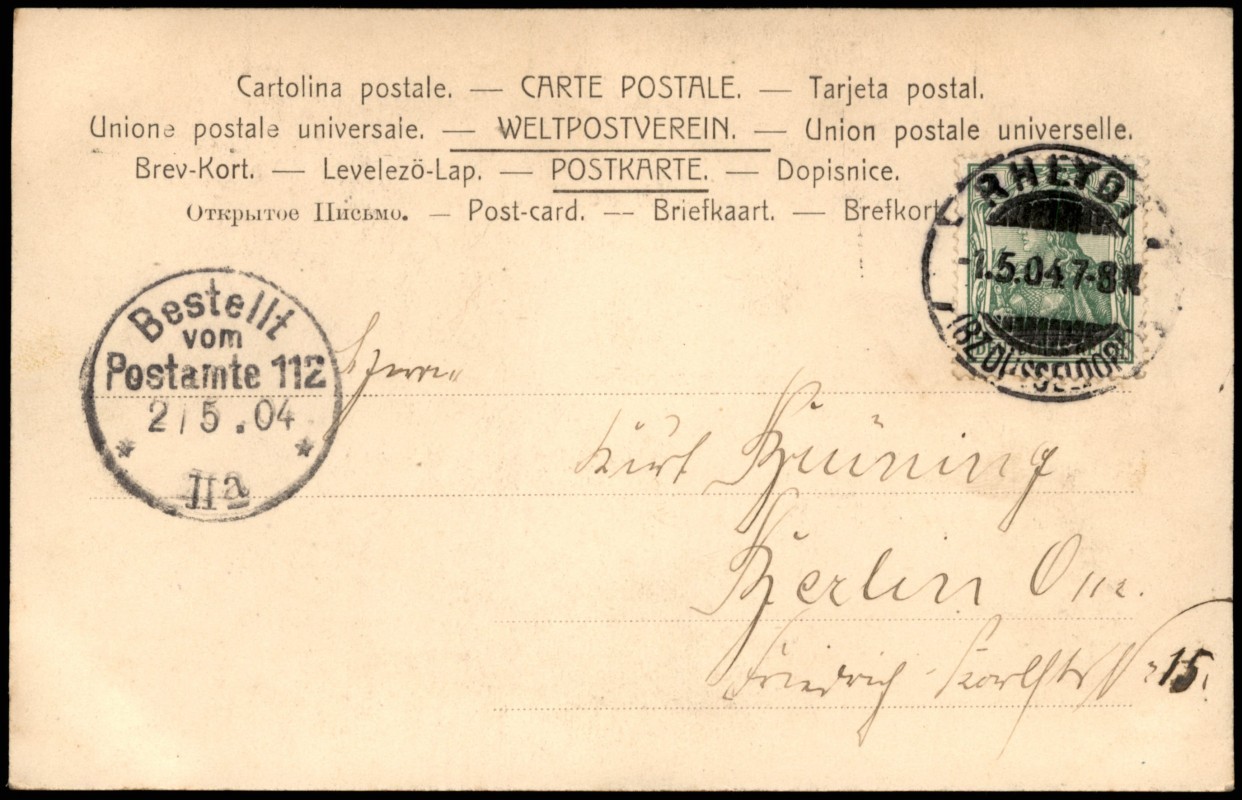 Cartolina postale. — CARTE POSTALE. — Tarjeta postal.
Unione postale universale. — WELTPOSTVEREIN. — Union postale universelle.
Brev-Kort. — Levelezö-Lap. — POSTKARTE. — Dopisnice.
Открытое Письмо. — Post-card. — Briefkaart. — Brefkort
RHEYDT
1.5.04.7-8N.
(BZ.DÜSSELDORF)
Bestellt
vom
Postamte 112
2/5.04
IIa
Herrn
Kurt Brüning
Berlin O 112.
Friedrich-Karlstr 15.